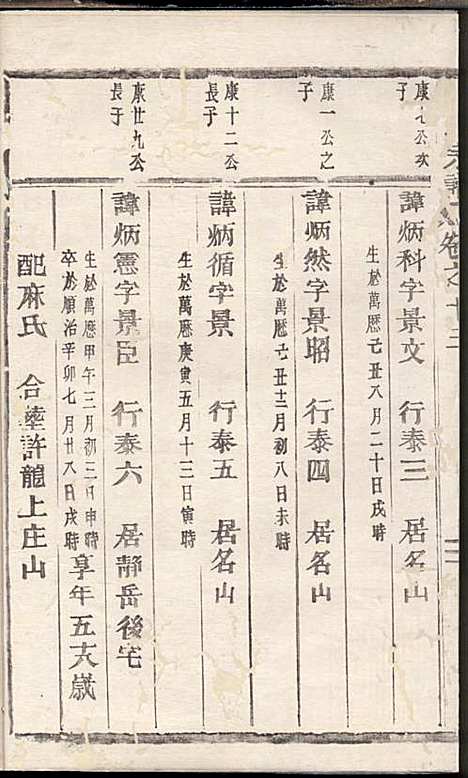 康七公次子
諱炳科字景文 行泰三 居名山
生於萬歷己丑八月二十日戌時
康一公之子
諱炳然字景昭 行泰四 居名山
生於萬歷己丑十二月初八日未時
康十二公長子
諱炳循字景 行泰五 居名山
生於萬歷庚寅五月十三日寅時
康廿九公長子
諱炳憲字景臣 行泰六 居靜岳後宅
生於萬歷甲午三月初三日申時
卒於順治辛卯七月廿八日戌時
享年五十八歲
配麻氏 合塟許龍上庄山